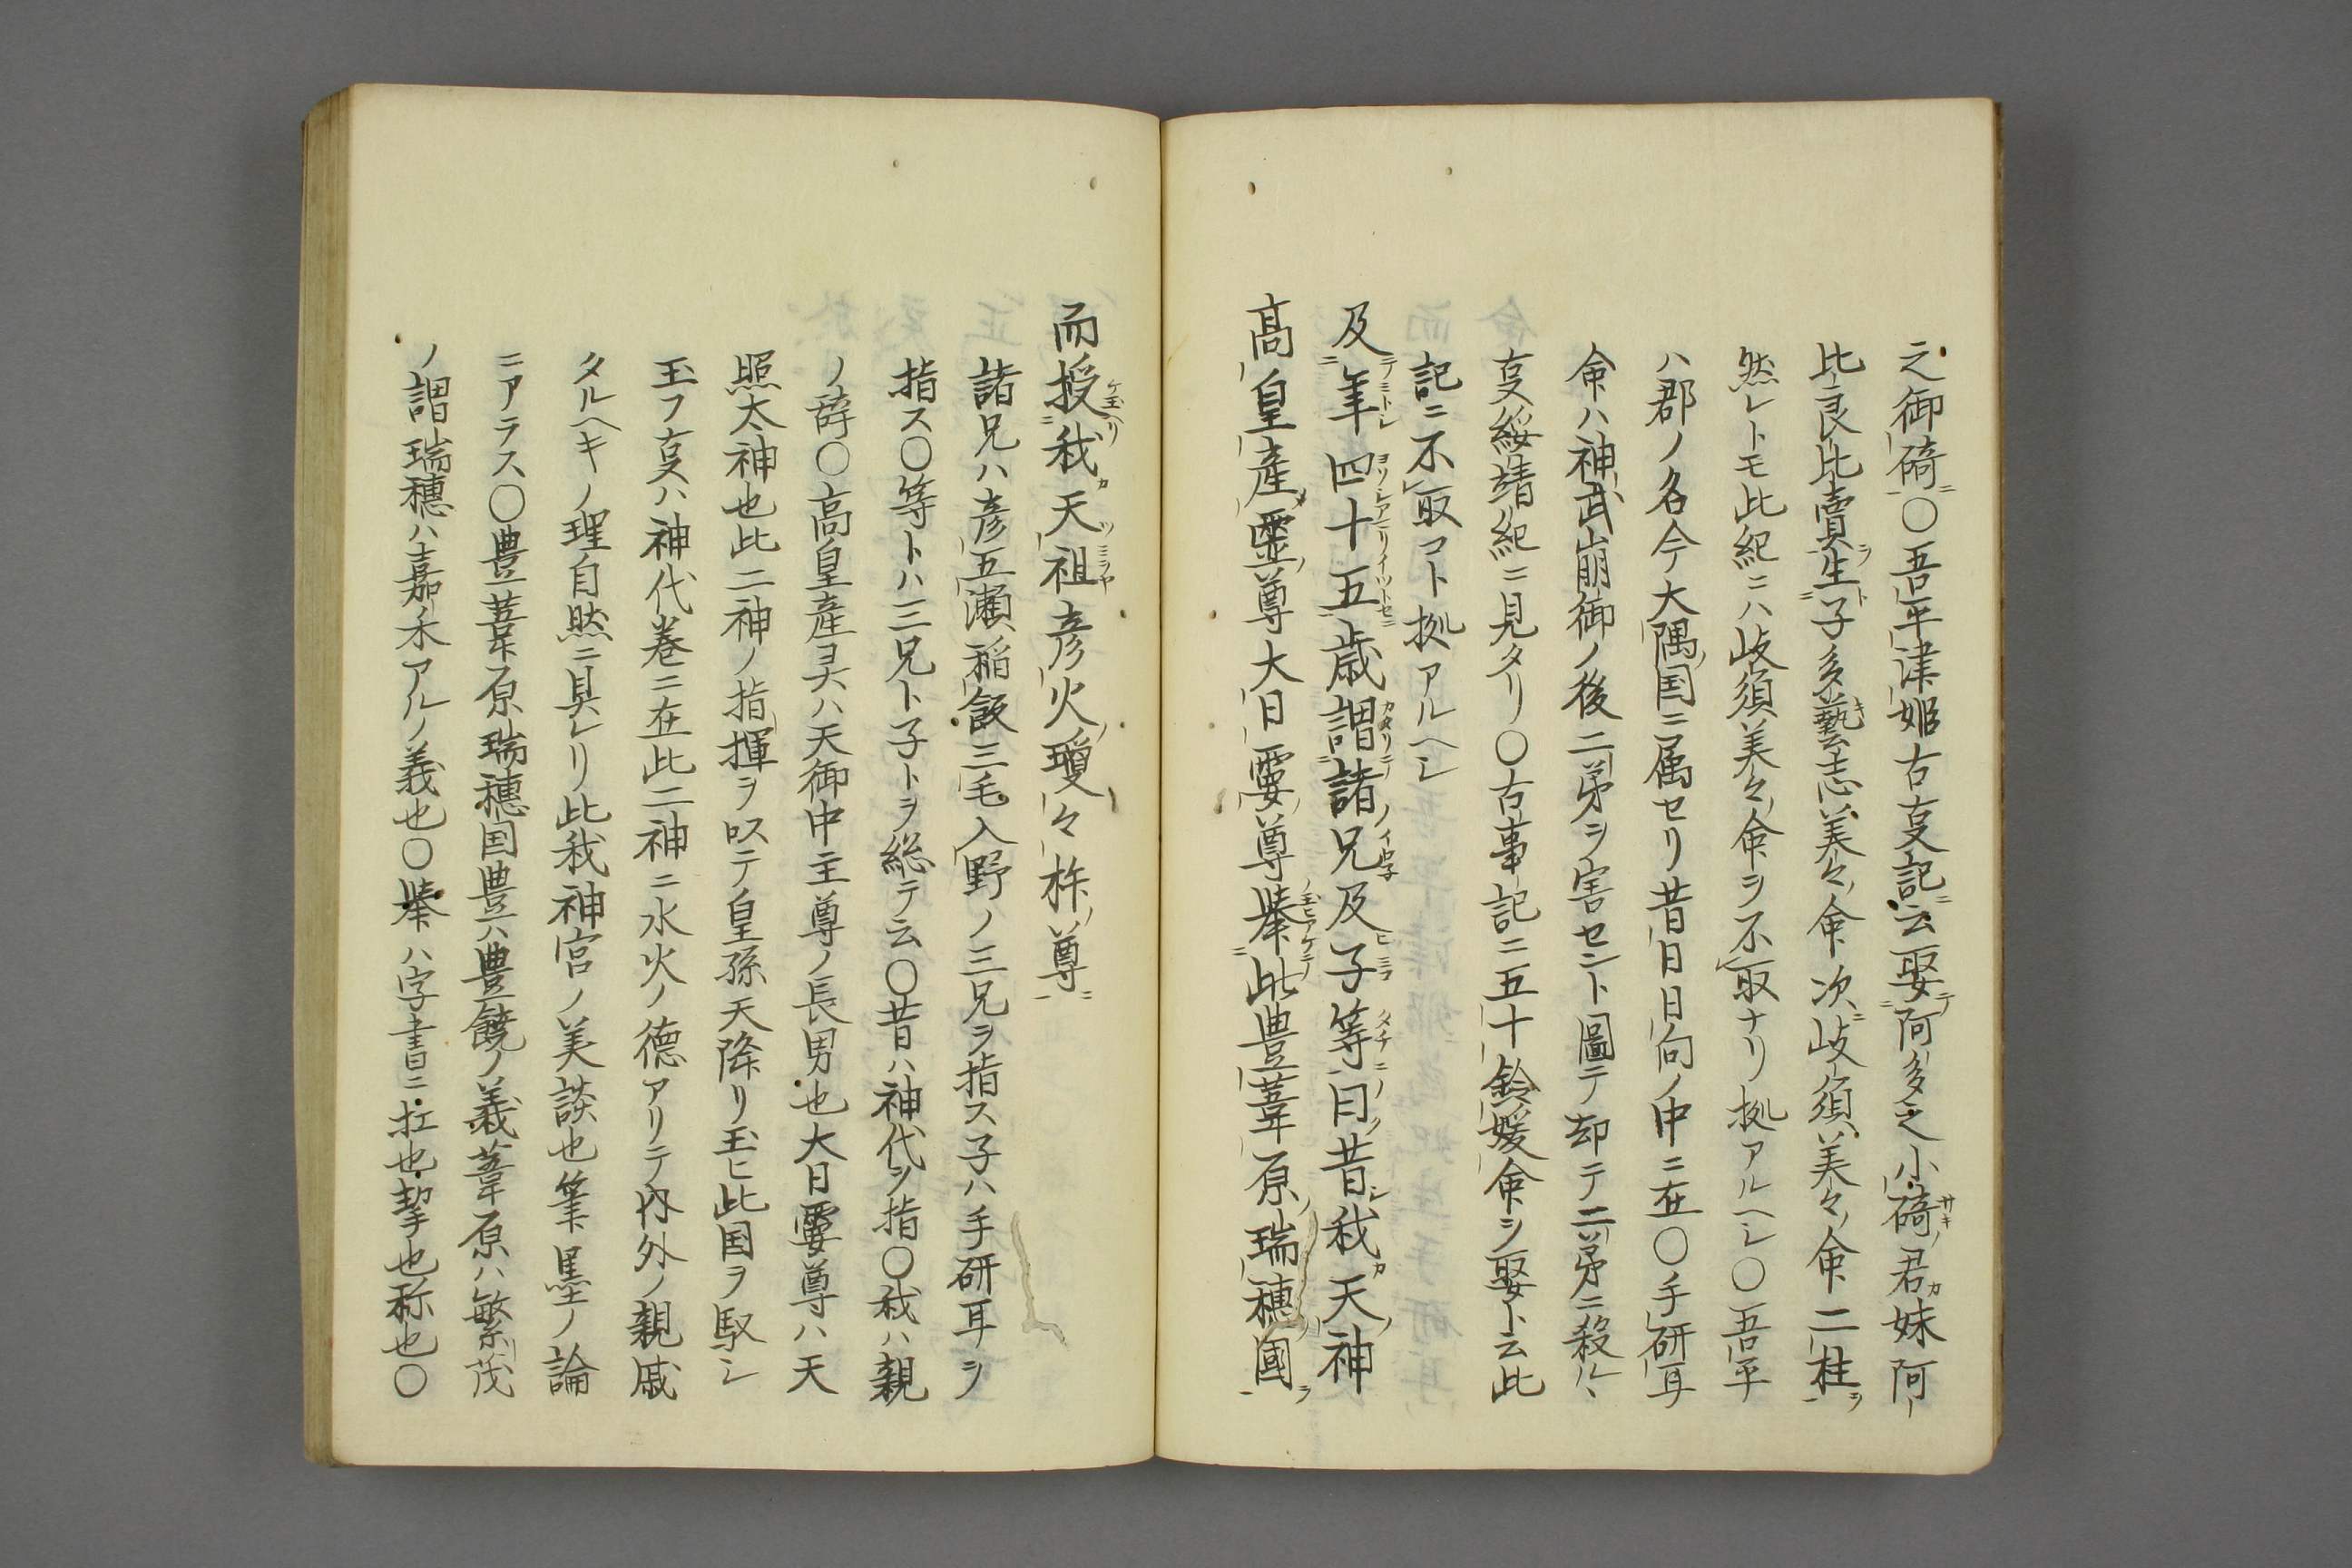 之御碕〇吾平津姫古㕝記云娶阿多之小碕君妹阿
比良比賣生子多藝志美々命次岐須美々命二柱
然レトモ此紀ニハ岐須美々命ヲ不取ナリ拠アルヘシ〇吾平
ハ郡ノ名今大隅国ニ属セリ昔日日向ノ中ニ在〇手研耳
命ハ神武崩御ノ後二弟ヲ害セント圖テ却テ二弟ニ殺ル、
㕝綏靖紀ニ見タリ〇古事記ニ五十鈴媛命ヲ娶ト云此
記ニ不取コト拠アルヘシ
及年四十五歳謂諸兄及子等曰昔我天神
高皇産霊尊大日孁尊擧此豊葦原瑞穂國
而授我天祖彦火瓊々杵尊
諸兄ハ彦五瀬稲飯三毛入野ノ三兄ヲ指ス子ハ手研耳ヲ
指ス〇等トハ三兄ト子トヲ総テ云〇昔ハ神代ヲ指〇我ハ親
ノ辞〇高皇産灵ハ天御中主尊ノ長男也大日孁尊ハ天
照太神也此二神ノ指揮ヲ以テ皇孫天降リ玉ヒ此国ヲ馭シ
玉フ㕝ハ神代巻ニ在此二神ニ水火ノ徳アリテ内外ノ親戚
タルヘキノ理自然ニ具レリ此我神宮ノ美談也筆墨ノ論
ニアラス〇豊葦原瑞穂国豊ハ豊饒ノ義葦原ハ繁茂
ノ謂瑞穂ハ嘉禾アルノ義也〇擧ハ字書ニ扛也挈也称也〇